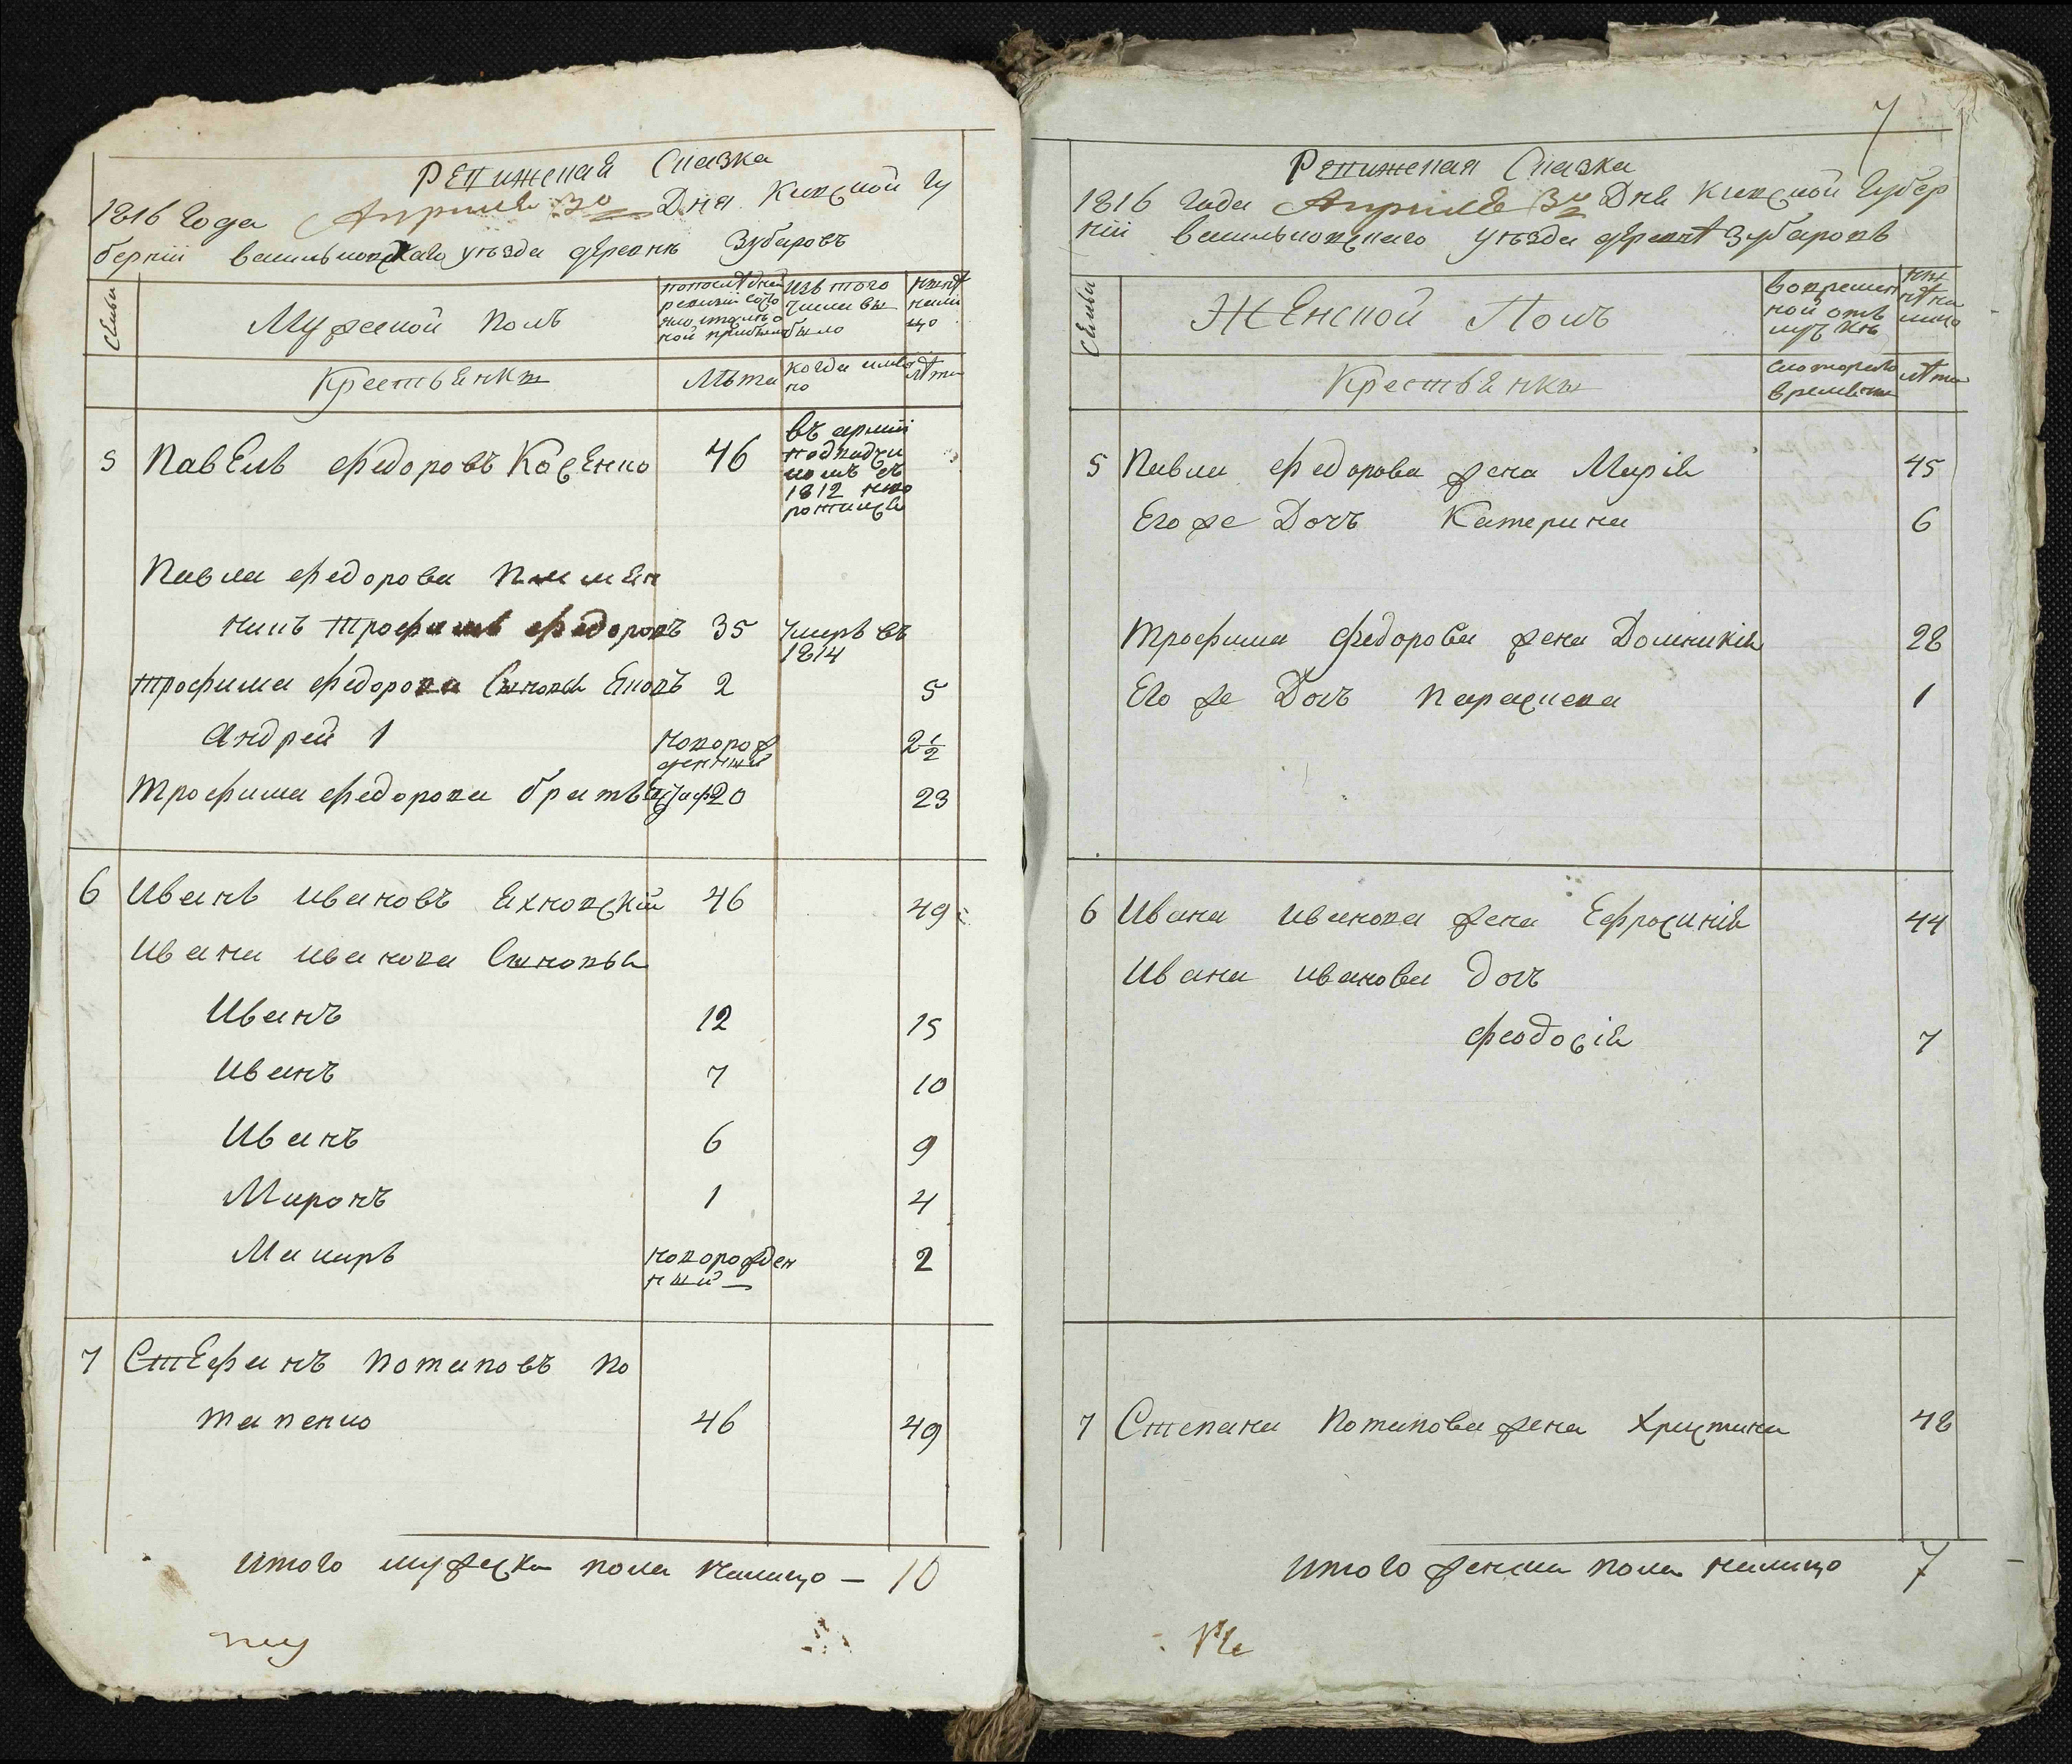 Ревижская Сказка
1816 Года Апреля 30 Дня Киевской Гу
бернiи васильковскаго уезда деревнѣ Зубаровъ
Семьи
Мужеской полъ
попоследней
ревизiи состо
яло и послѣ о
ной прибыло
Изъ того
числа вы
было
ныне
нали
цо
Крестьянкы
Лѣта
когда имя
но
лѣта
5 Павелъ Федоровъ Косенко 46
въ армiи
1812
Павла Федорова племян
никъ Трофимъ Федоровъ 35 умеръ въ
1814
Трофима Федорова Сыновья Яковъ 2 5
Андрей 1 новорож
денный 2 1/2
Трофима Федорова братъ 20 23
6 Иванъ Ивановъ Яхновскiй 46 49
Ивана Иванова Сыновья
Иванъ 12 15
Иванъ 7 10
Иванъ 6 9
Миронъ 1 4
Макиръ новорожден
ный 2
7 Стефанъ Потаповъ По
тапенко 46 49
Итого мужеска пола налицо — 10
7
Ревижская Сказка
1816 года Апреля 30 Дня Киевской Губер
нiи васильковскаго уѣзда деревнѣ Зубаровъ
Семьи
Женской Полъ
вовремен
ной отлу
чкѣ
ны
нѣ на
лицо
Крестьянкы
скоторого
времѣни
лѣта
5 Павла Федорова жена Марiя 45
Его же Дочъ Катерина 6
Трофима Федорова жена Домникiя 28
Его же Дочъ Параскева 1
6 Ивана Иванова жена Ефросинiя 44
Ивана Иванова дочъ
Феодосiя 7
7 Степана Потапова жена Христина 48
Итого женска пола налицо 7